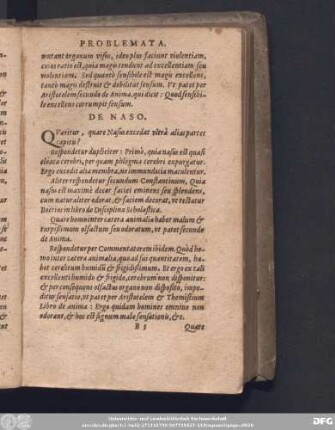 PROBLEMATA.
mutant organum visus, ideo plus faciunt violentiam,
cuius ratio est, quia magis tendunt ad excellentiam seu
violentiam. Sed quanto sensibile est magis excellens,
tanto magis destruit & debilitat sensum. Vt patet per
Aristotelem secundo de Anima, qui dicit: Quod sensibi-
le excellens corrumpit sensum.
DE NASO.
QVæritur, quare Nasus excedat vltrà alias partes
capitis?
Respondetur dupliciter: Primò, quia nasus est quasi
cloaca cerebri, per quam phlegma cerebri expurgatur.
Ergo excedit alia membra, ne immundicia maculentur.
Aliter respondetur secundum Constantinum, Quia
nasus est maximè decor faciei eminens seu splendens,
cum natur aliter odorat, & faciem decorat, vt testatur
Boëtius in libro de Disciplina Scholastica.
Quare homo inter cætera animalia habet malum &
turpissimum olfactum seu odoratum, vt patet secundo
de Anima.
Respondetur per Commentatorem ibidem. Quòd ho-
mo inter cætera animalia, quo ad sui quantitatem, ha-
bet cerebrum humidū & frigidissimum. Et ergo ex tali
excellenti humido & frigido, cerebrum non disponitur:
& per consequens olfactus organo non disposito, impe-
ditur sensatio, vt patet per Aristotelem & Themistium
Libro de anima: Ergo quidam homines omnino non
odorant, & hoc est signum malæ sensationis, &c.
B 3 Quare
Universitäts- und Landesbibliothek Sachsen-Anhalt
DFG